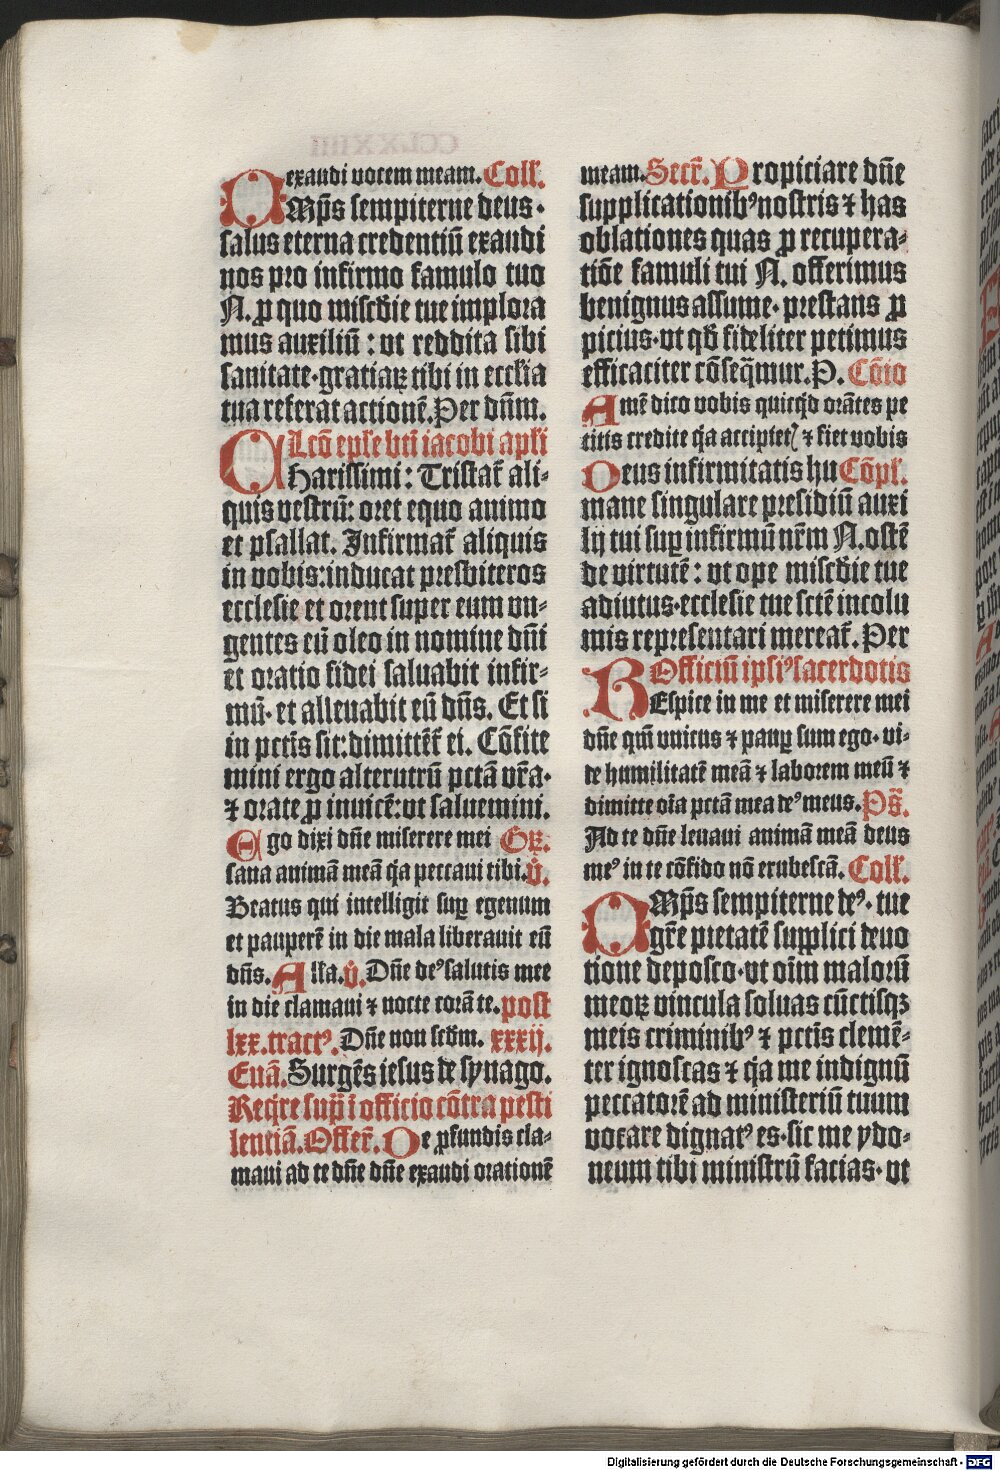 exaudi vocem meam. Coll'.
OMp̄s sempiterne deus·
salus eterna credentiū exaudi
nos pro infirmo famulo tuo
N. ꝑ quo mīscd̄ie tue implora
mus auxiliū : vt reddita sibi
sanitate·gratiaꝝ tibi in eccl'ia
tua referat actionē. Per dn̄m.
Lc̄o ep̄le bt̄i iacobi apl'i
CHarissimi : Tristat᷑ ali-
quis vestrū: oret equo animo
et psallat. Infirmat᷑ aliquis
in vobis:inducat presbiteros
ecclesie et orent super eum vn-
gentes eū oleo in nomine dn̄i
et oratio fidei saluabit infir-
mū· et alleuabit eū dn̄s. Et si
in pctīs sit:dimittēt᷑ ei. Cōfite
mini ergo alterutrū pctā vr̄a·
⁊ orate ꝑ inuicē:vt saluemini.
Ego dixi dn̄e miserere mei Gr̄.
sana animā meā q̄a peccaui tibi. v̄.
Beatus qui intelligit suꝑ egenum
et pauperē in die mala liberauit eū
dn̄s. Alla. v̄. Dn̄e deꝰ salutis mee
in die clamaui ⁊ nocte corā te. post
lxx.tractꝰ. Dn̄e non scd̄m. xxxij.
Euā. Surgēs iesus de synago.
Req̄re sup̄ ī officio cōtra pesti
lentiā. Offer̄. De ꝓfundis cla-
maui ad te dn̄e dn̄e exaudi orationē
meam. Secr̄. Propiciare dn̄e
supplicationibꝰ nostris ⁊ has
oblationes quas ꝑ recupera-
tiōe famuli tui N. offerimus
benignus assume· prestans ꝑ
picius·vt qd̄ fideliter petimus
efficaciter cōseq̄mur. P. Cōio
Amē dico vobis quicq̄d orātes pe
titis credite q̄a accipiet᷑ ⁊ fiet vobis
Deus infirmitatis hu Cōpl'.
mane singulare presidiū auxi
lij tui suꝑ infirmū nr̄m N. ostē
de virtutē : vt ope mīscd̄ie tue
adiutus·ecclesie tue sctē incolu
mis representari mereat᷑. Per
Officiū ipsiꝰ sacerdotis
REspice in me et miserere mei
dn̄e qm̄ vnicus ⁊ pauꝑ sum ego· vi-
de humilitatē meā ⁊ laborem meū ⁊
dimitte oīa pctā mea deꝰ meus. Ps̄.
Ad te dn̄e leuaui animā meā deus
meꝰ in te cōfido nō erubescā. Coll'.
OMp̄s sempiterne deꝰ· tue
gr̄e pietatē supplici deuo
tione deposco·vt oīm malorū
meoꝝ vincula soluas cūctisqꝫ
meis criminibꝰ ⁊ pctīs clemē-
ter ignoscas ⁊ q̄a me indignū
peccatorē ad ministeriū tuum
vocare dignatꝰ es·sic me ydo-
neum tibi ministrū facias· vt
Digitalisierung gefördert durch die Deutsche Forschungsgemeinschaft - DFG